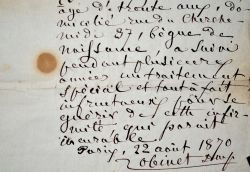 âgé de trente ans, do-
micilié rue du Cherche
midi 37, bègue de
naissance, a suivi
pendant plusieurs
années un traitement
spécial et tout à fait
infructueux pour se
guérir de cette infir-
mité, qui parait
incurable.
Paris, 22 août 1870
Robinet